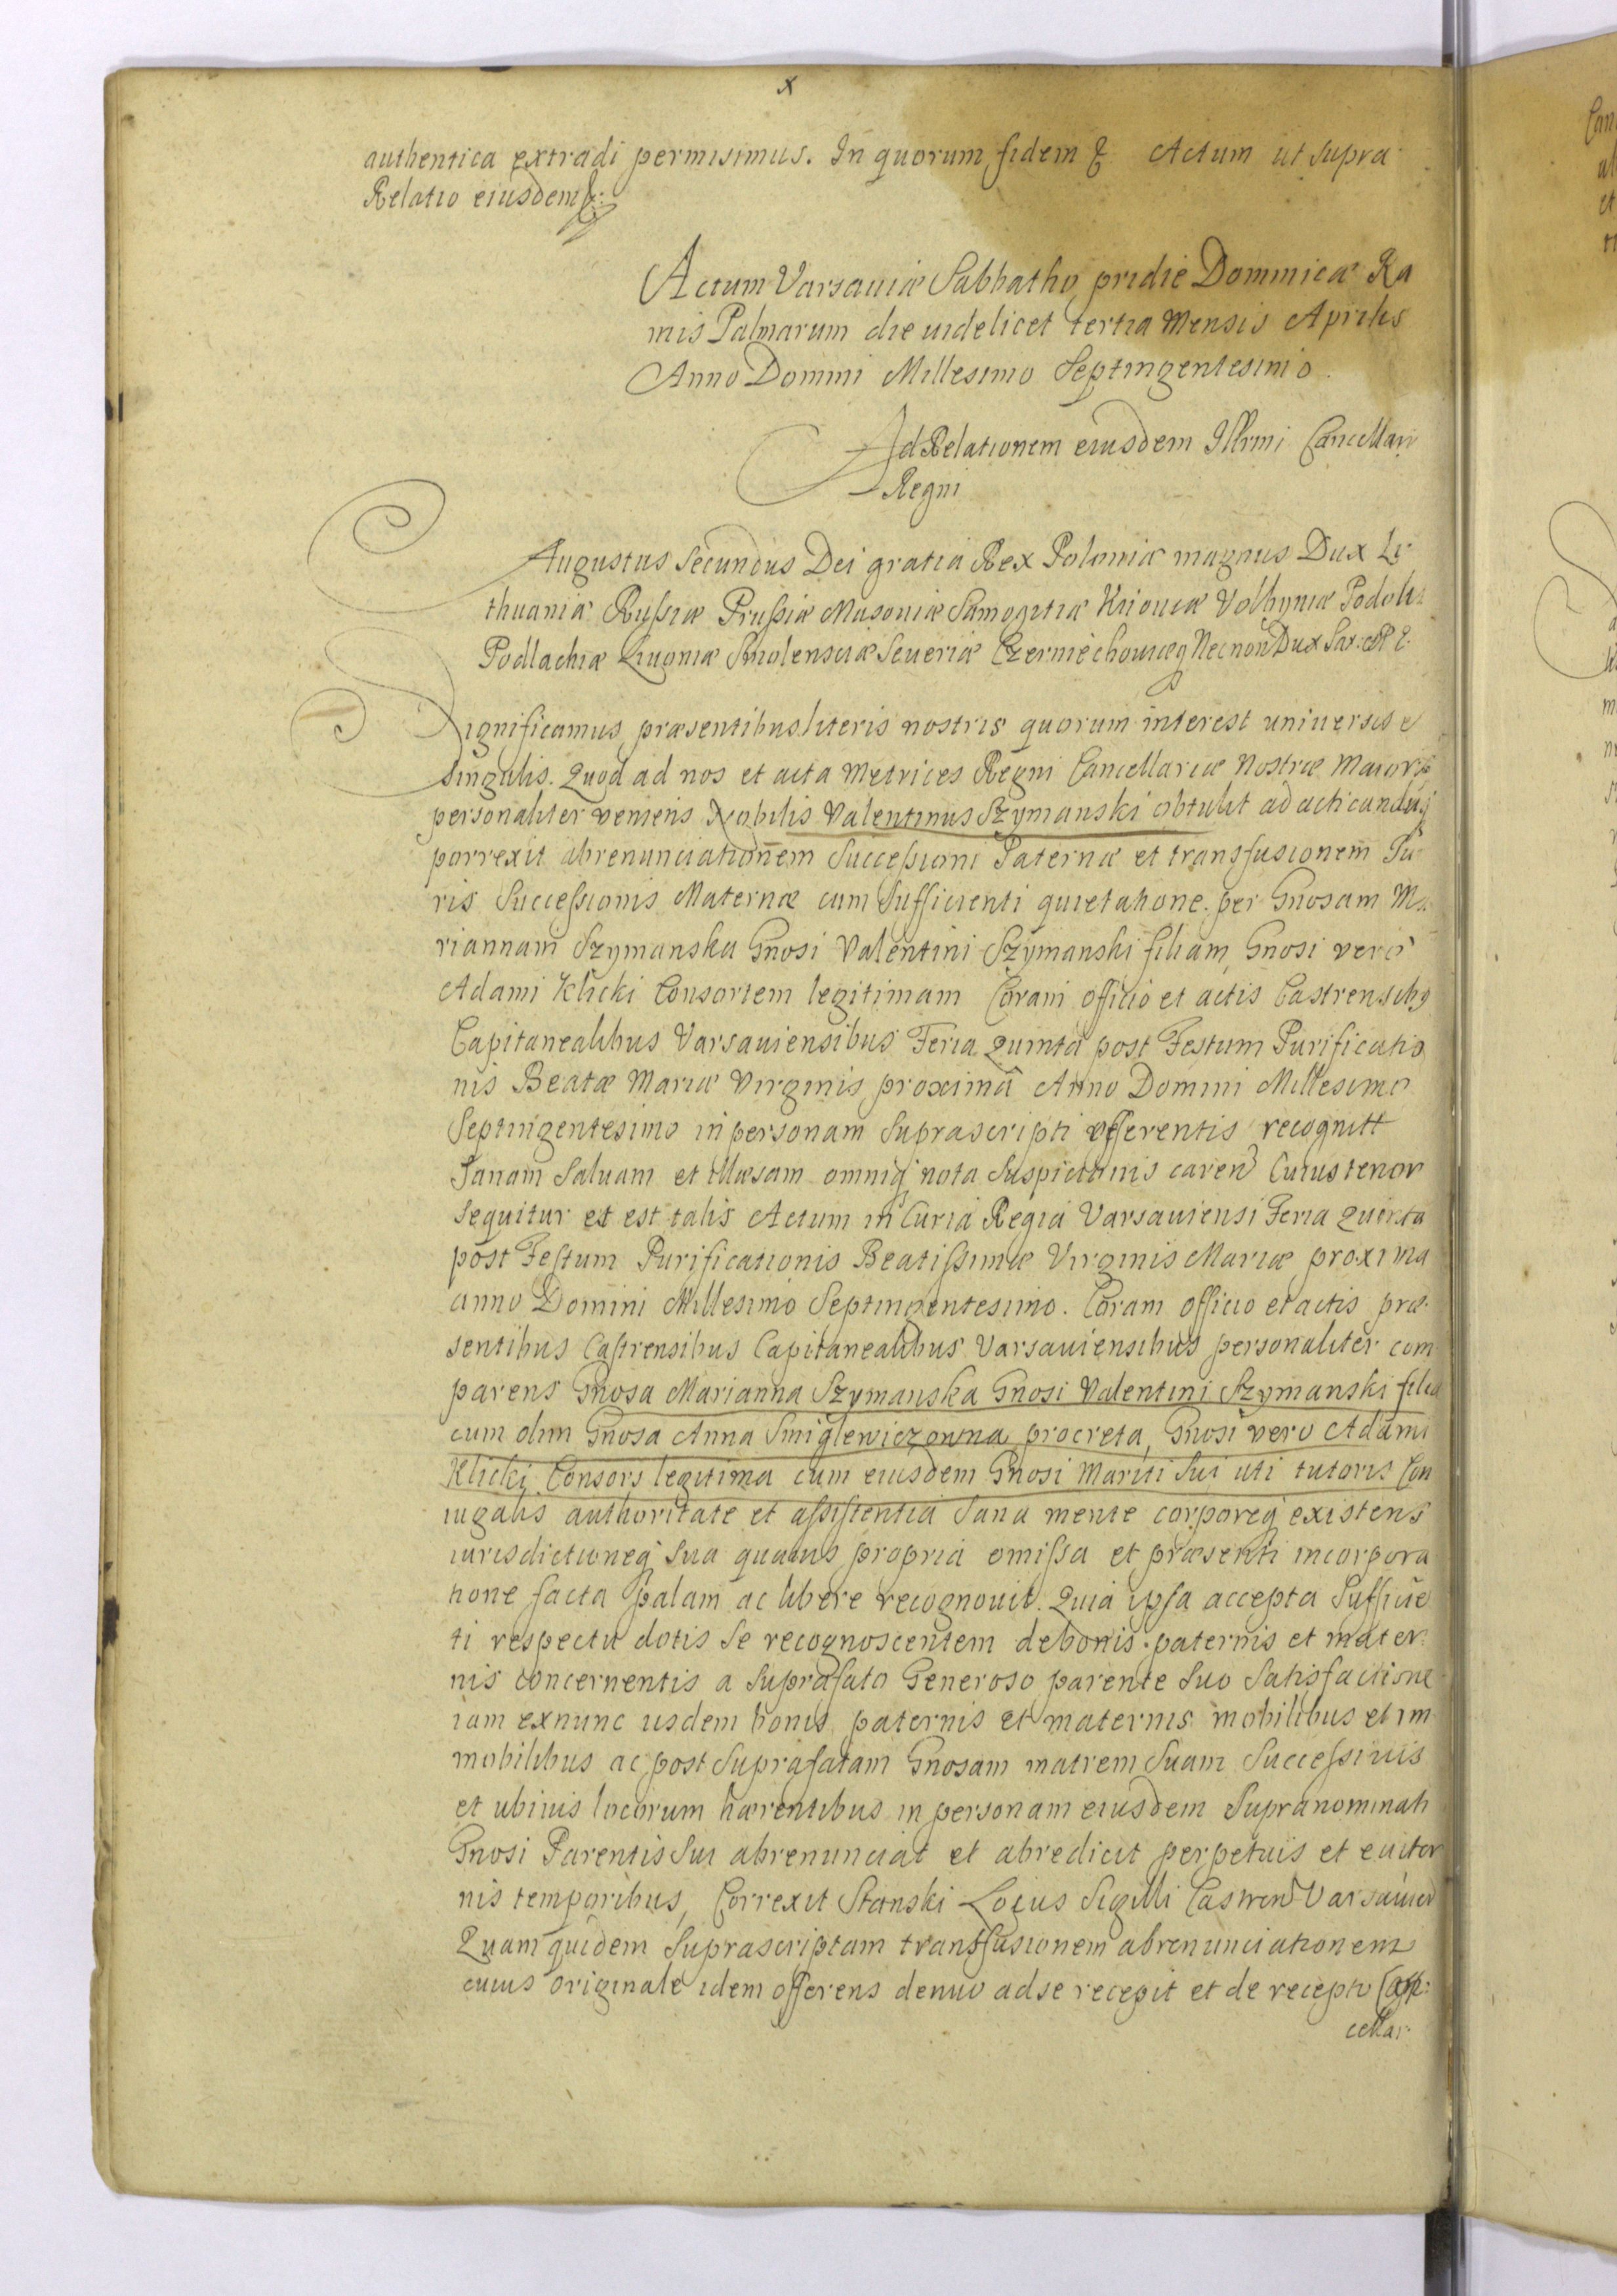 x
authentica extradi permisimus. In quorum fidem & Actum ut supra
Relatio eiusdem &:
Actum Varsaviæ Sabbatho pridie Dominicæ Ra
mis Palmarum die videlicet tertia Mensis Aprilis
Anno Domini Millesimo Septingentesimo.
Ad Relationem eiusdem Illrmi Cancellarii
Regni
Augustus Secundus Dei gratia Rex Poloniæ magnus Dux Li
thuaniæ Russiæ Prussiæ Masoviæ Samogitiæ Kijoviæ Volhyniæ Podoliæ
Podlachiæ Livoniæ Smolensciæ Severiæ Czerniechoviæq Necnon Dux Sax: &
Significamus præsentibus literis nostris quorum interest universis e
singulis. Quod ad nos et acta Metrices Regni Cancellariæ Nostræ Maioris
personaliter veniens Nobilis Valentinus Szymanski obtulit ad acticandūq
porrexit abrenunciationem Successioni Paternæ et transfusionem Iu
ris Successionis Maternæ cum sufficienti quietatione per Gnosam Ma
riannam Szymanska Gnosi Valentini Szymanski filiam, Gnosi vero
Adami Klicki Consortem legitimam Coram officio et actis Castrensibq
Capitanealibus Varsaviensibus Feria quinta post Festum Purificatio
nis Beatæ Mariæ Virginis proxima Anno Domini Millesimo
Septingentesimo in personam suprascripti offerentis recognitt
Sanam Salvam et illæsam omniq nota suspicionis caren Cuius tenor
sequitur et est talis Actum in Curia Regia Varsaviensi Feria quinta
post Festum Purificationis Beatissimæ Virginis Mariæ proxima
anno Domini Millesimo Septingentesimo. Coram officio et actis præ
sentibus Castrensibus Capitanealibus Varsaviensibus personaliter com
parens Gnosa Marianna Szymanska Gnosi Valentini Szymanski filia
cum olim Gnosa Anna Smiglewiczowna procreta, Gnosi vero Adami
Klicki Consors legitima cum eiusdem Gnosi Mariti sui uti tutoris Con
iugalis authoritate et assistentia sana mente corporeq existens
iurisdictioneq sua quavis propria omissa et præsenti incorpora
tione facta palam ac libere recognovit. Quia ipsa accepta sufficiē
ti respectu dotis se recognoscentem de bonis paternis et mater
nis concernentis a suprafato Generoso parente suo satisfactione
iam exnunc iisdem bonis paternis et maternis mobilibus et im
mobilibus ac post suprafatam Gnosam matrem suam successivis
et ubivis locorum hærentibus in personam eiusdem supranominati
Gnosi Parentis sui abrenunciat et abredicit perpetuis et eviter
nis temporibus, Correxit Stanski Locus Sigilli Castren Varsavien
Quam quidem suprascriptam transfusionem abrenunciationem
cuius originale idem offerens denuo ad se recepit et de recepto
cellar